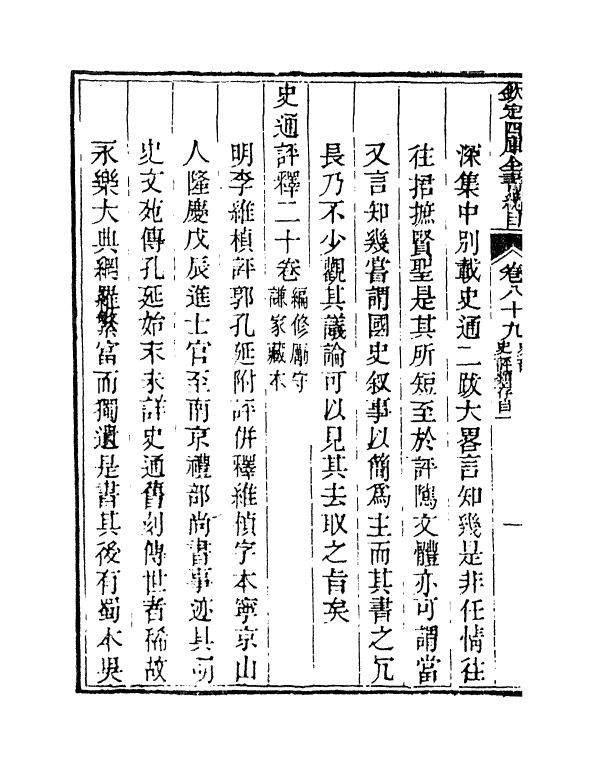 欽定四庫全書總目 卷八十九 史部 史評類存目一 一
深集中別載史通二跋大畧言知幾是非任情往
往捃摭賢聖是其所短至於評隲文體亦可謂當
又言知幾嘗謂國史叙事以簡爲主而其書之冗
長乃不少觀其議論可以見其去取之旨矣
史通評釋二十卷 編修勵守謙家藏本
明李維楨評郭孔延附評併釋維楨字本寧京山
人隆慶戊辰進士官至南京禮部尚書事迹具明
史文苑傳孔延始末未詳史通舊刻傳世者稀故
永樂大典網羅繁富而獨遺是書其後有蜀本吳